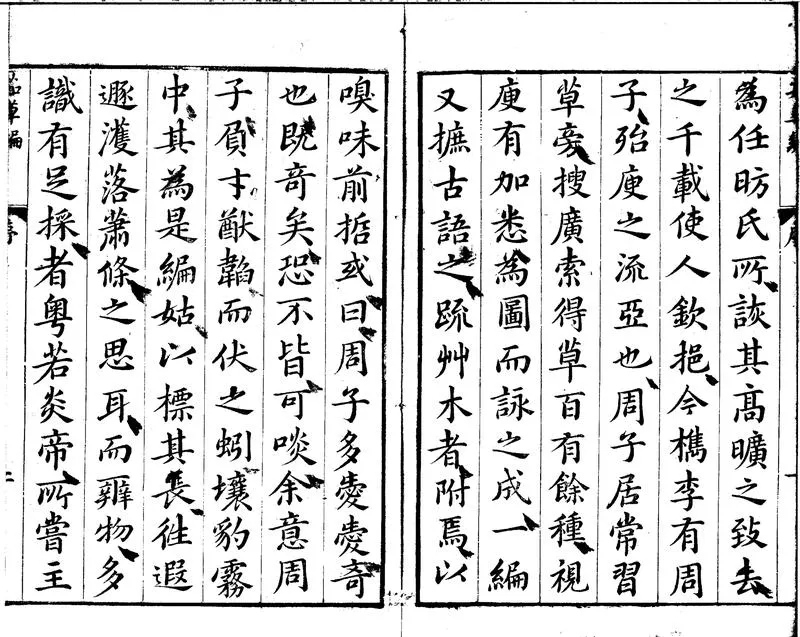 為任昉氏所詼其髙曠之致去
之千載使人欽挹今檇李有周
子殆庾之流亞也周子居常習
草旁搜廣索得草百有餘種視
庾有加悉為圖而詠之成一編
又摭古語之疏艸木者附焉以
嗅味前哲或曰周子多愛愛奇
也既奇矣恐不皆可啖余意周
子負才猷韜而伏之蚓壤豹霧
中其為是編姑以標其長往遐
遯濩落蕭條之思耳而辨物多
識有足採者粤若炎帝所嘗主
茹草編
序
二